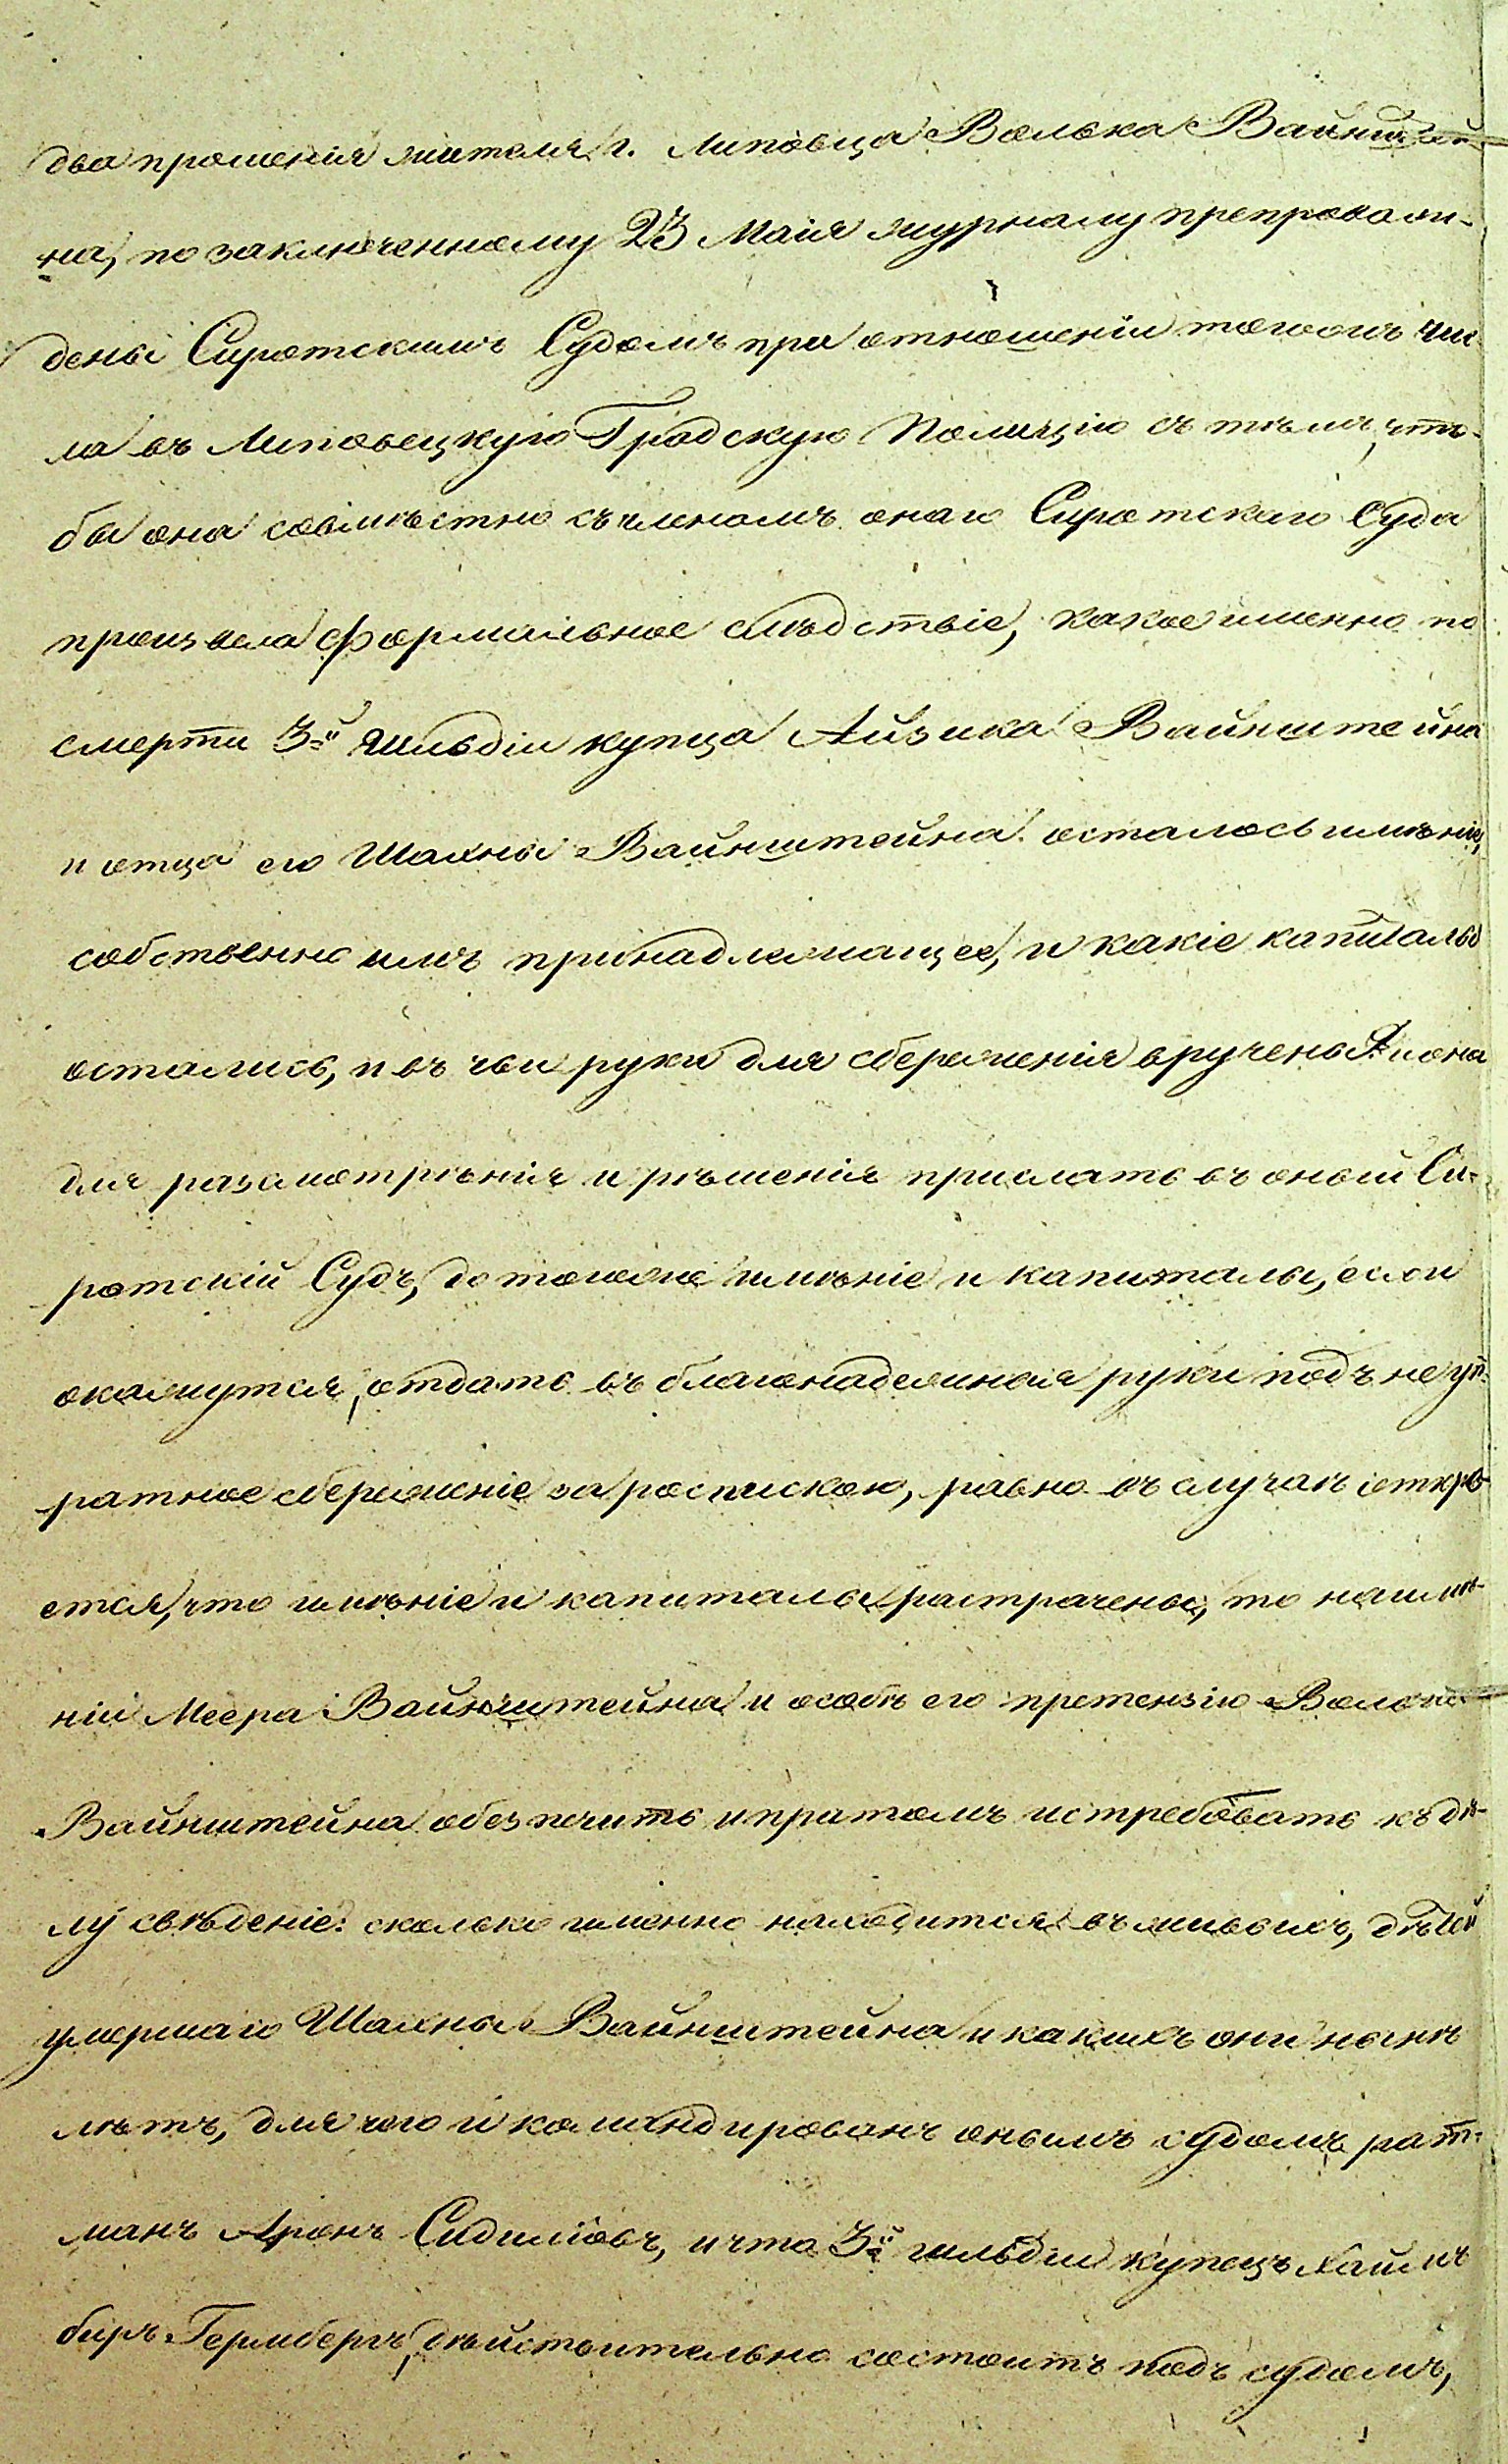 два прошенія жителя г. Липовца Волька Вайнштей-
на, по заключенному 23 Маія журналу препровож-
дены Сиротскимъ Судомъ при отношеніи тогожъ чис
ла въ Липовецкую Градскую Полицію съ тѣмъ, что-
бы она совмѣстно съ членомъ онаго Сиротскаго Суда
произвела формальное слѣдствіе, какое именно по
смерти 3й гильдіи купца Айзика Вайнштейна
и отца его Шахны Вайнштейна осталось имѣніе,
собственно имъ принадлежащее, и какіе капиталы
остались, и въ чьи руки для сбереженія вручены, и оное
для разсмотрѣнія и рѣшенія прислать въ оный Си-
ротскій Судъ, до того же имѣніе и капиталы, если
окажутся, отдать въ благонадежныя руки подъ не ут-
ратное сбереженіе за роспискою, равно въ случаѣ откро-
ется, что имѣніе и капиталы растрачены, то на имѣ-
ніи Меера Вайнштейна и особѣ его претензію Волька
Вайнштейна обезпечить и притомъ истребовать къ дѣ-
лу свѣденіе: сколько именно находится въ живыхъ, дѣтей
умершаго Шахны Вайнштейна и какихъ они нынѣ
лѣтъ, для чего и командированъ онымъ судомъ рат-
манъ Аронъ Сидиковъ, и что 3й гильдіи купецъ Хаимъ
беръ Гермбергъ, дѣйствительно состоитъ подъ судомъ,